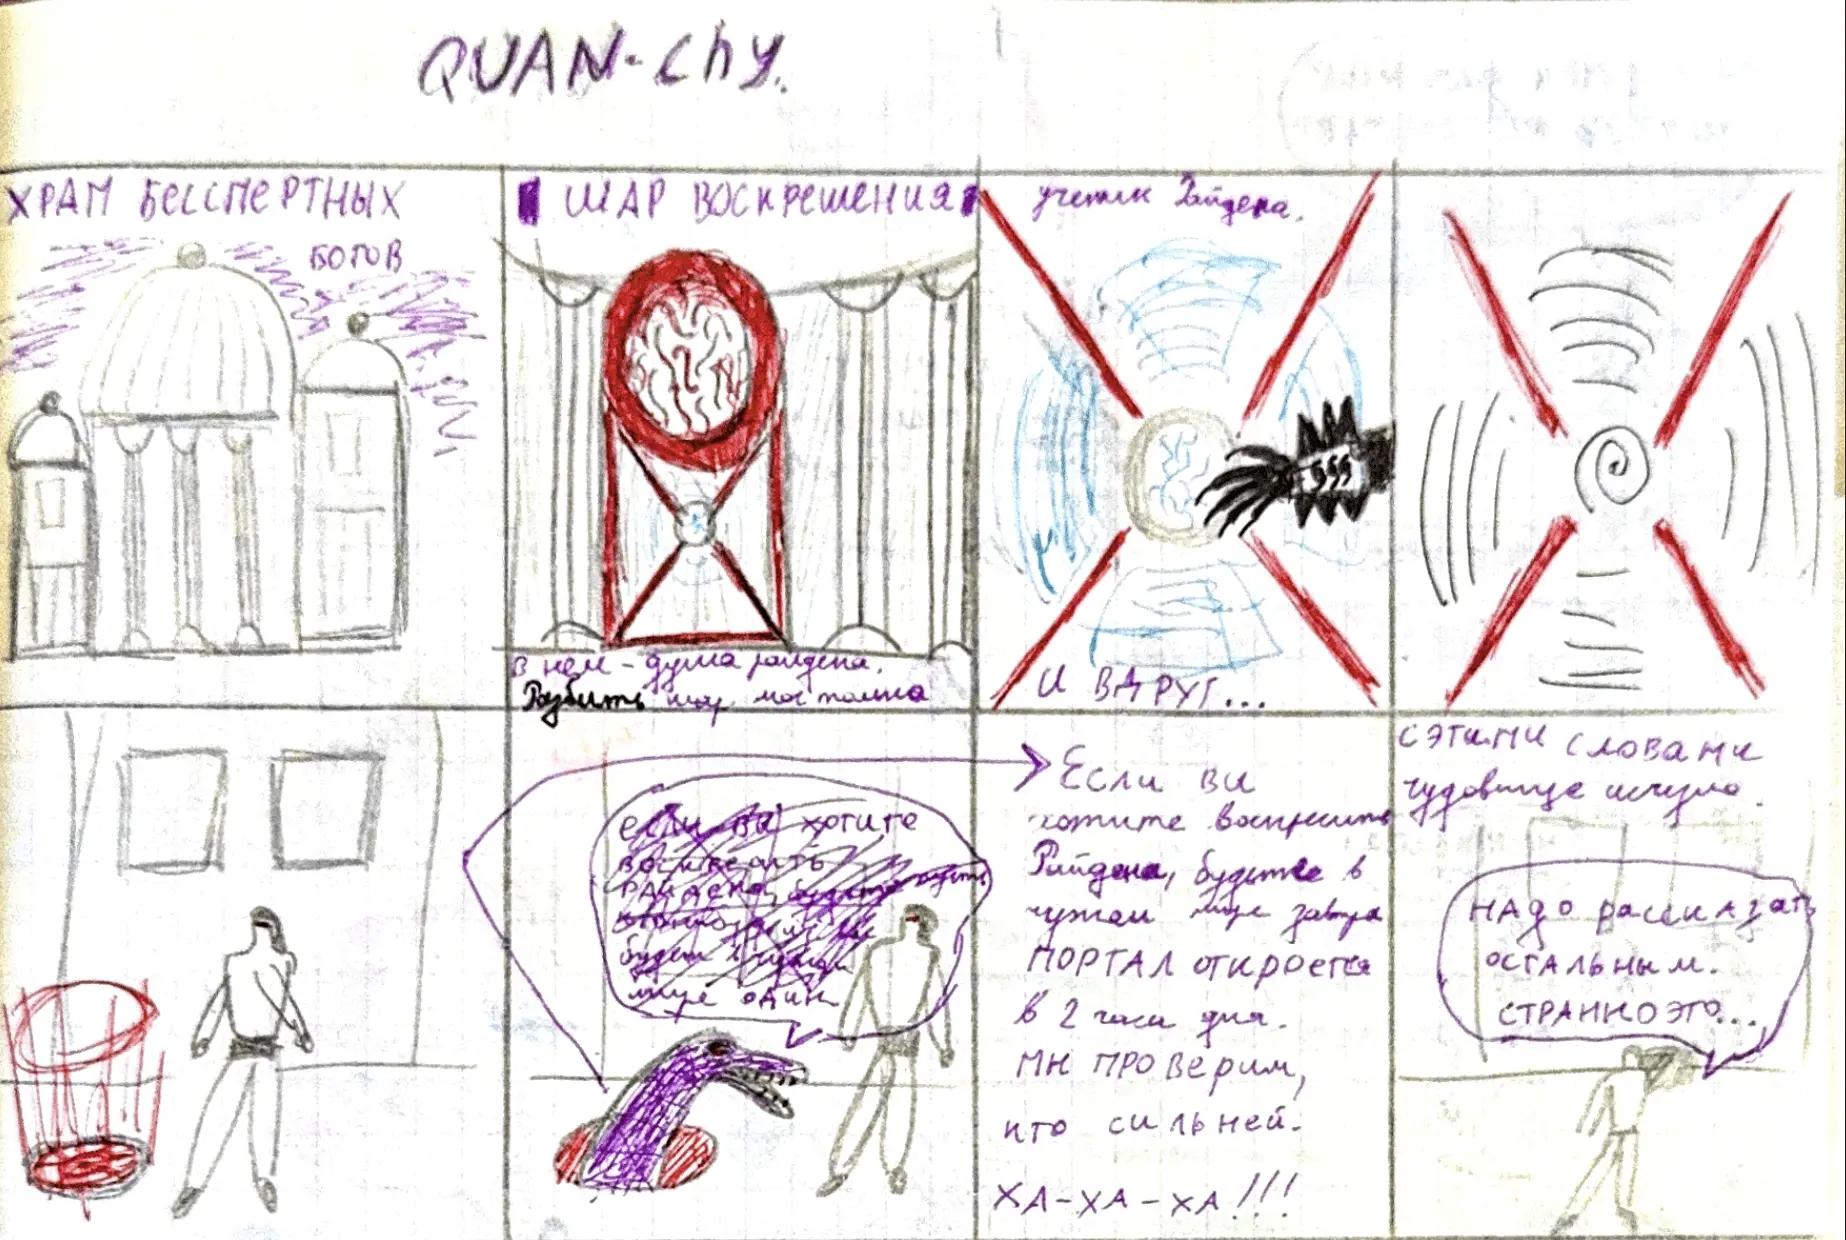 QUAN-Chy.
ХРАМ БЕССМЕРТНЫХ
БОГОВ
ШАР ВОСКРЕШЕНИЯ
В нём - душа райдена.
Разбить шар мог только
ученик Райдена.
И ВДРУГ...
если вы хотите
воскресить
РАЙДЕНА, будьте
будет в чужом
мире один
Если ви
хотите воскресить
Райдена, будьте в
чужом мире завтра
ПОРТАЛ откроется
в 2 часа дня.
МЫ ПРОВЕРИМ,
кто сильней.
ХА-ХА-ХА!!!
С ЭТИМИ СЛОВАМИ
чудовище исчезло.
НАДО рассказать
ОСТАЛЬНЫМ.
СТРАННО ЭТО...